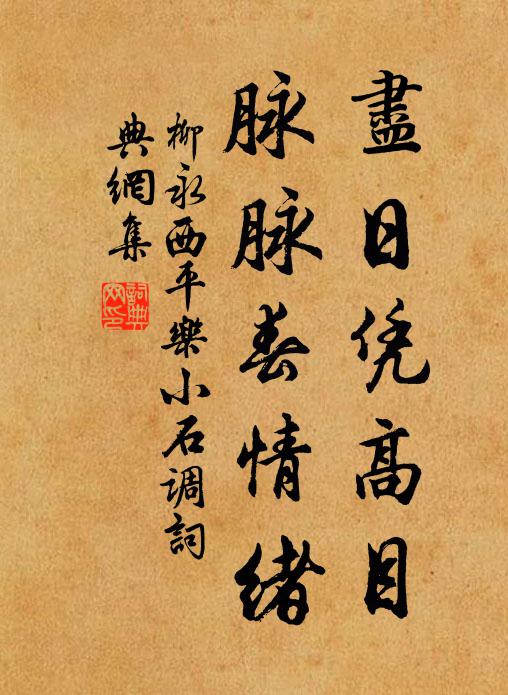 盡日凭高目
脉脉春情緒
柳永西平樂小石调詞
典網集
詞典
网印